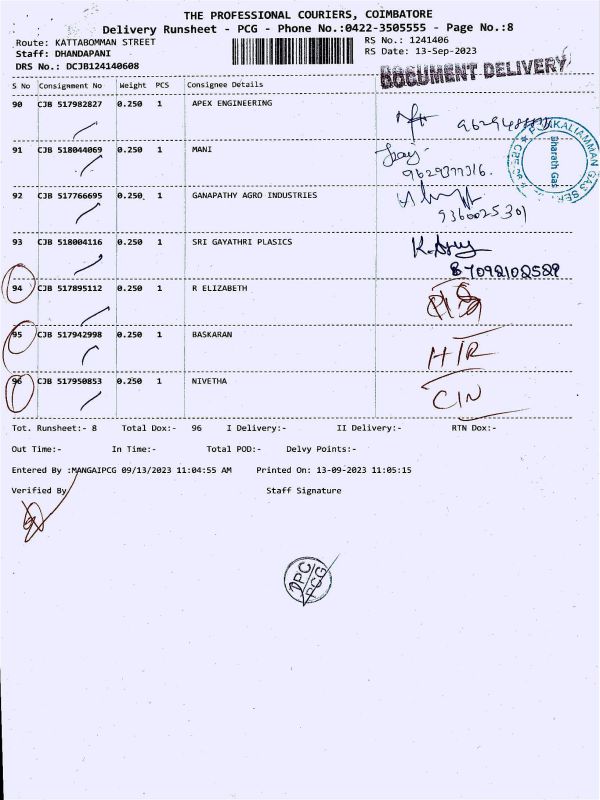 THE PROFESSIONAL COURIERS, COIMBATORE
Delivery Runsheet - PCG - Phone No.:0422-3505555 - Page No.:8
Route: KATTABOMMAN STREET
RS No.: 1241406
Staff: DHANDAPANI
RS Date: 13-Sep-2023
DRS No.: DCJB124140608
DOCUMENT DELIVERY
S No Consignment No Weight PCS Consignee Details
90 CJB 517982827 0.250 1 APEX ENGINEERING
91 CJB 518044069 0.250 1 MANI
9629377316.
Bharath Gas
92 CJB 517766695 0.250 1 GANAPATHY AGRO INDUSTRIES
9360025301
93 CJB 518004116 0.250 1 SRI GAYATHRI PLASICS
87092102529
94 CJB 517895112 0.250 1 R ELIZABETH
95 CJB 517942998 0.250 1 BASKARAN
HTR
96 CJB 517950853 0.250 1 NIVETHA
CIN
Tot. Runsheet:- 8 Total Dox:- 96 I Delivery:- II Delivery:- RTN Dox:-
Out Time:- In Time:- Total POD:- Delvy Points:-
Entered By :MANGAIPCG 09/13/2023 11:04:55 AM Printed On: 13-09-2023 11:05:15
Verified By Staff Signature
PCG